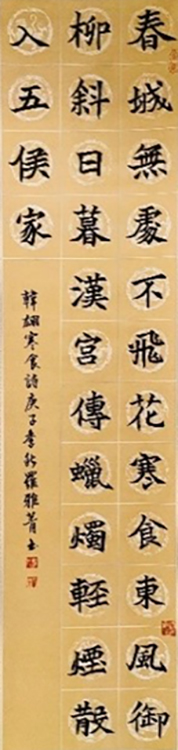 春城無處不飛花寒食東風御
柳斜日暮漢宮傳蠟燭輕煙散
入五侯家
韓翃寒食詩庚子季秋羅雅菁書